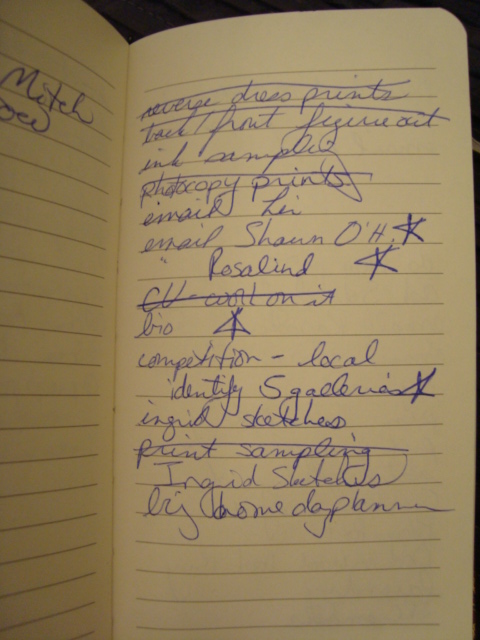 Mitch
reverse dress prints
back/front figure out
ink samples
photocopy prints
email Liv
email Shaun O'H.
" Rosalind
CV - work on it
bio
competition - local
identify 5 galleries
ingrid sketches
print sampling
Ingrid Sketches
big home dayplanner